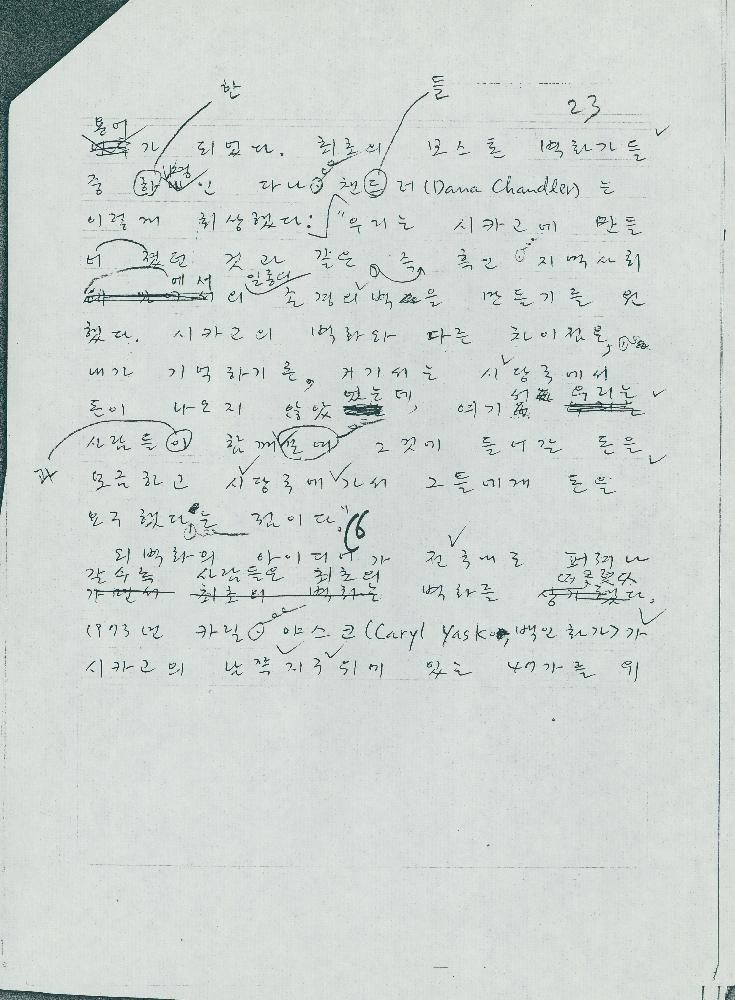 한 들
23
용어가 되었다. 최초의 보스톤 벽화가들
중 한 명인 다나 챈들러(Dana Chandler)는
이렇게 회상했다: "우리는 시카고에 만들
어졌던 것과 같은 즉 흑인 지역사회
에서의 일종의 존경의 벽을 만들기를 원
했다. 시카고의 벽화와 다른 차이점은,
내가 기억하기론, 거기서는 시당국에서
돈이 나오지 않았는데, 여기서 우리는
사람들과 함께 그것에 들어갈 돈을
모금하고 시당국에 가서 그들에게 돈을
요구했다는 점이다."
6
외벽화의 아이디어가 전국내로 퍼져나
갈수록 사람들은 최초의 벽화를 떠올렸다.
1973년 카릴 야스코(Caryl Yasko, 백인화가)가
시카고의 남쪽지구 위에 있는 47가를 위